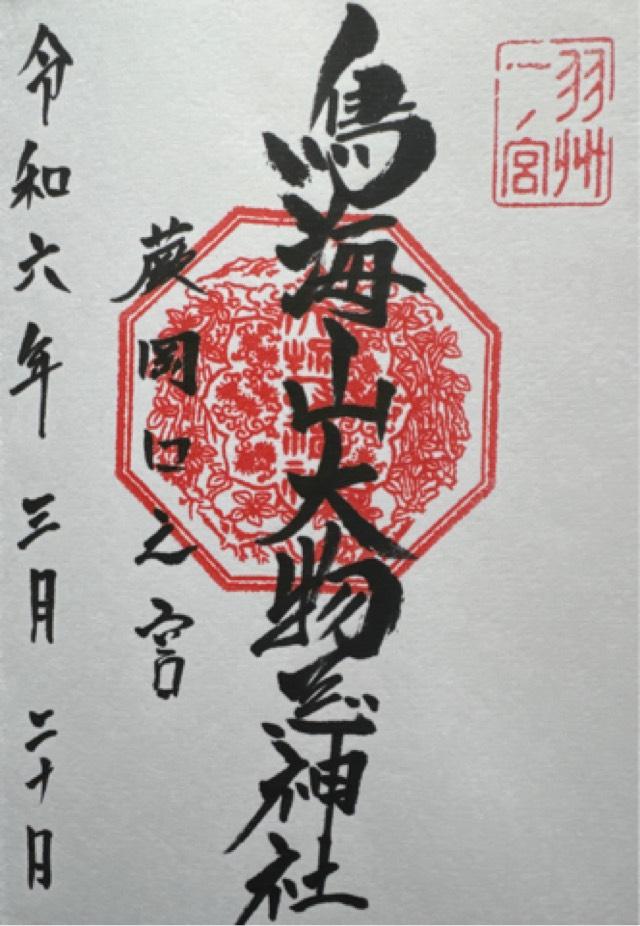 羽州
一ノ宮
鳥海山大物忌神社
蕨岡口之宮
令和六年三月二十日